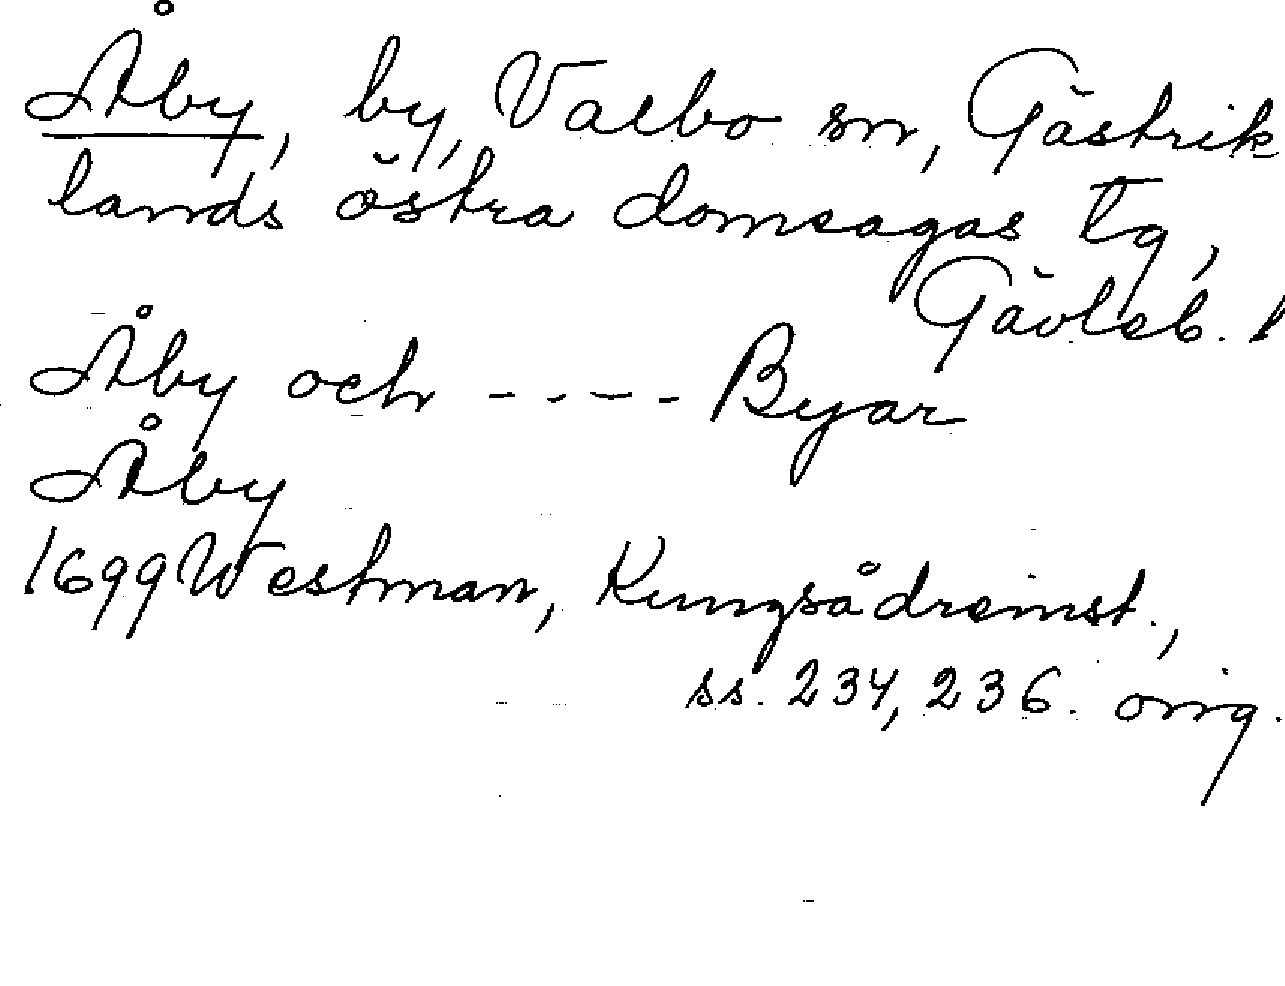 Åby, by, Valbo sn, Gästrik
lands östra domsagas tg,
Gävleb. l
Åby och ---- Byar
Åby
1699 Westman, Kungsådremst.,
ss. 234, 236. orig.